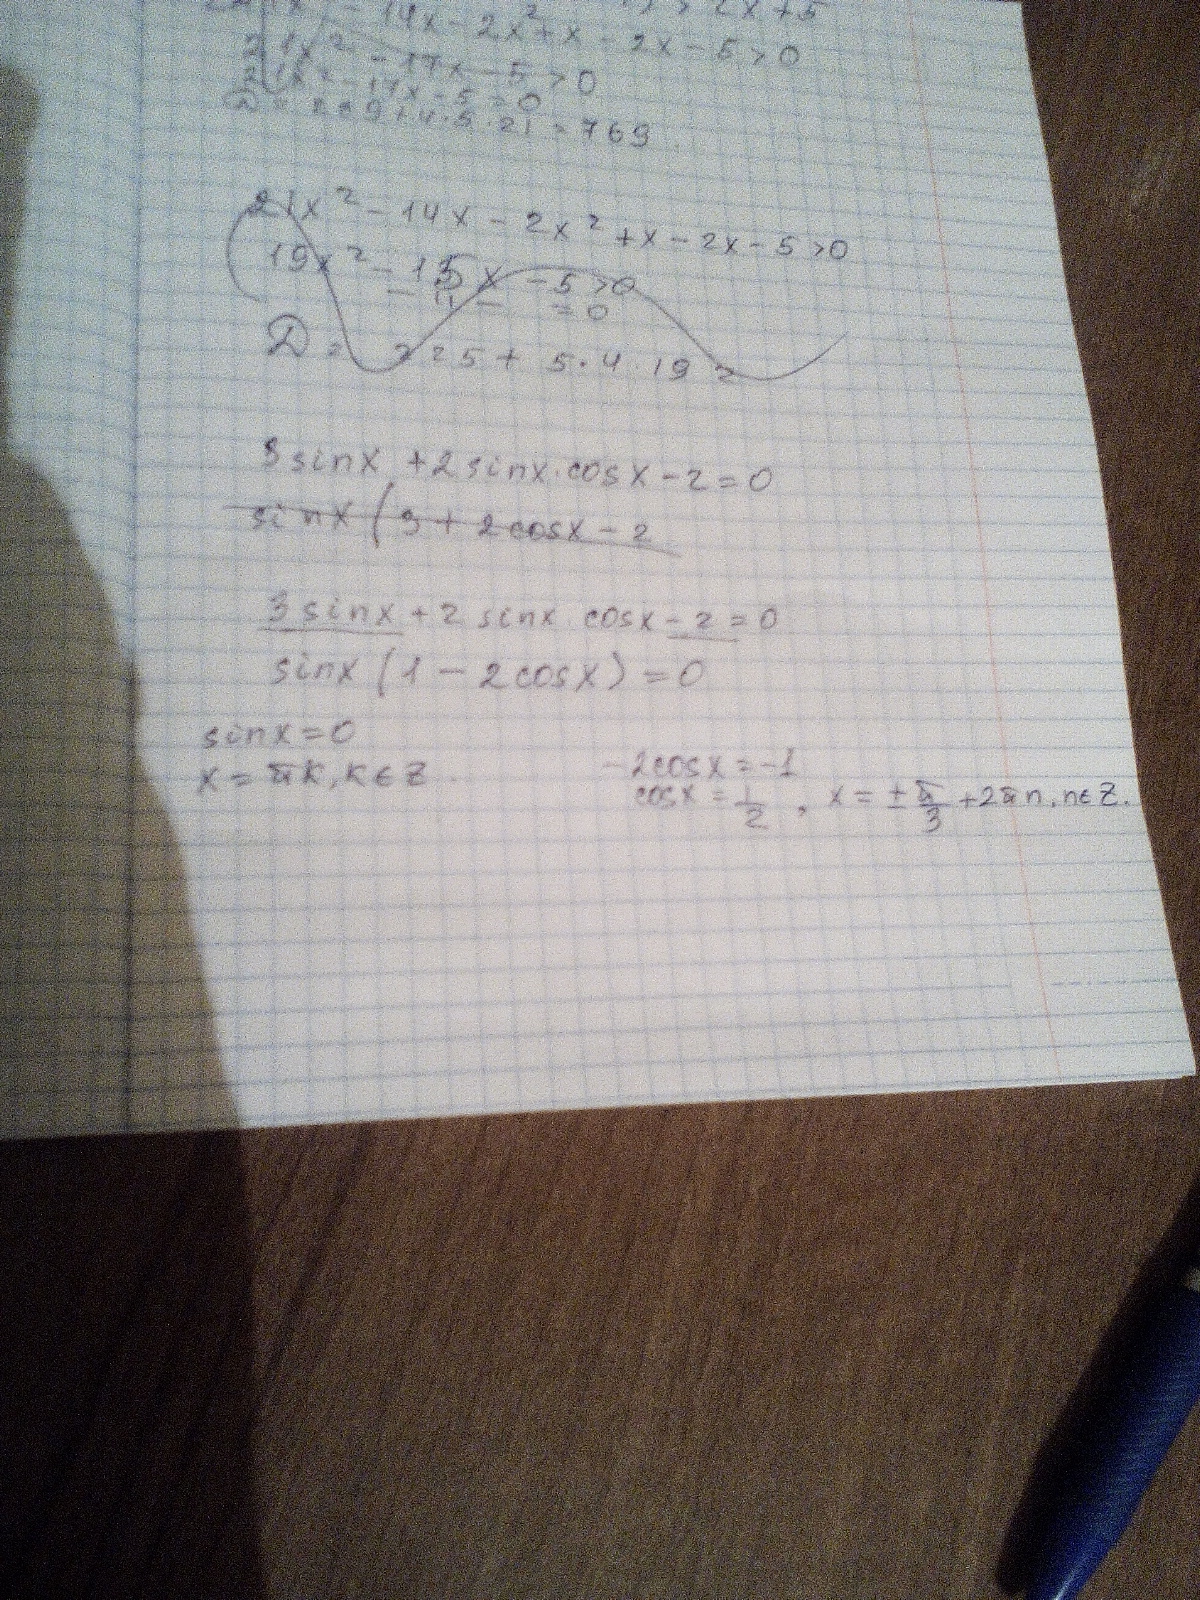 - 14x - 2x² + x - 2x - 5 > 0
1x² - 17x - 5 > 0
1x² - 17x - 5 = 0
D = 289 + 4·5·21 = 769
21x² - 14x - 2x² + x - 2x - 5 > 0
19x² - 15x - 5 > 0
- 11 - = 0
D = 225 + 5·4·19 =
3sinx + 2sinx·cosx - 2 = 0
sinx (3 + 2cosx - 2
3sinx + 2 sinx cosx - 2 = 0
sinx (1 - 2cosx) = 0
sinx = 0
x = πk, k∈Z
-2cosx = -1
cosx = 1/2, x = ± π/3 + 2πn, n∈Z.